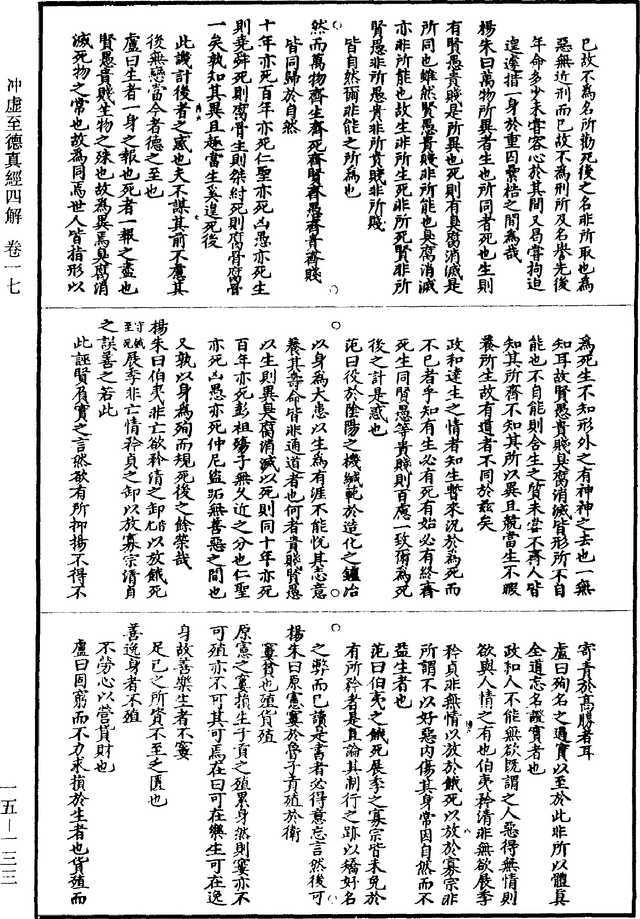 已故不為名所勸死後之名非所取也為
惡無近刑而已故不為刑所及名譽先後
年命多少未嘗容心於其間又曷嘗拘迫
遑遽措一身於重囚纍梏之間為哉
楊朱曰萬物所異者生也所同者死也生則
有賢愚貴賤是所異也死則有臭腐消滅是
所同也雖然賢愚貴賤非所能也臭腐消滅
亦非所能也故生非所生死非所死賢非所
賢愚非所愚貴非所貴賤非所賤
皆自然爾非能之所為也
然而萬物齊生齊死齊賢齊愚齊貴齊賤
皆同歸於自然
十年亦死百年亦死仁聖亦死凶愚亦死生
則堯舜死則腐骨生則桀紂死則腐骨腐骨
一矣孰知其異且趣當生奚遑死後
此譏計後者之惑也夫不謀其前不慮其
後無戀當今者德之至也
盧曰生者一身之報也死者一報之盡也
賢愚貴賤生物之殊也故為異焉臭腐消
滅死物之常也故為同焉世人皆指形以
為死生不知形外之有神神之去也一無
知耳故賢愚貴賤臭腐消滅皆形所不自
能也不自能則含生之質未嘗不齊人皆
知其所齊不知其所以異且競當生不暇
養所生故有道者不同於茲矣
政和達生之情者知生暫來況於為死而
不已者乎知有生必有死有始必有終齊
死生同賢愚等貴賤則百慮一致爾為死
後之計是惑也
范曰役於陰陽之機緘範於造化之鑪冶
以身為大患以生為有涯不能恱其志意
養其壽命皆非通道者也何者貴賤賢愚
以生則異臭腐消滅以死則同十年亦死
百年亦死彭祖殤子無久近之分也仁聖
亦死凶愚亦死仲尼盜跖無善惡之間也
又孰以身為殉而規死後之餘榮哉
楊朱曰伯夷非亡欲矜清之卸以放餓死
守餓至死展季非亡情矜貞之卸以放寡宗清貞
之誤善之若此
此誣賢負實之言然欲有所抑揚不得不
寄責於高勝者耳
盧曰殉名之過實以至於此非所以體真
全道忘名證實者也
政和人不能無欲既謂之人惡得無情則
欲與人情之有也伯夷矜清非無欲展季
矜貞非無情以放於餓死以放於寡宗非
所謂不以好惡內傷其身常因自然而不
益生者也
范曰伯夷之餓死展季之寡宗皆未免於
有所矜者是直論其制行之跡以矯好名
之弊而已讀是書者必得意忘言然後可
楊朱曰原憲窶於魯子貢殖於衛
窶貧也殖貨殖
原憲之窶損生子貢之殖累身然則窶亦不
可殖亦不可其可焉在曰可在樂生可在逸
身故善樂生者不窶
足已之所資不至乏匱也
善逸身者不殖
不勞心以營貨財也
盧曰固窮而不力求損於生者也貨殖而
冲虛至德真經四解 卷一七
一五—一三三